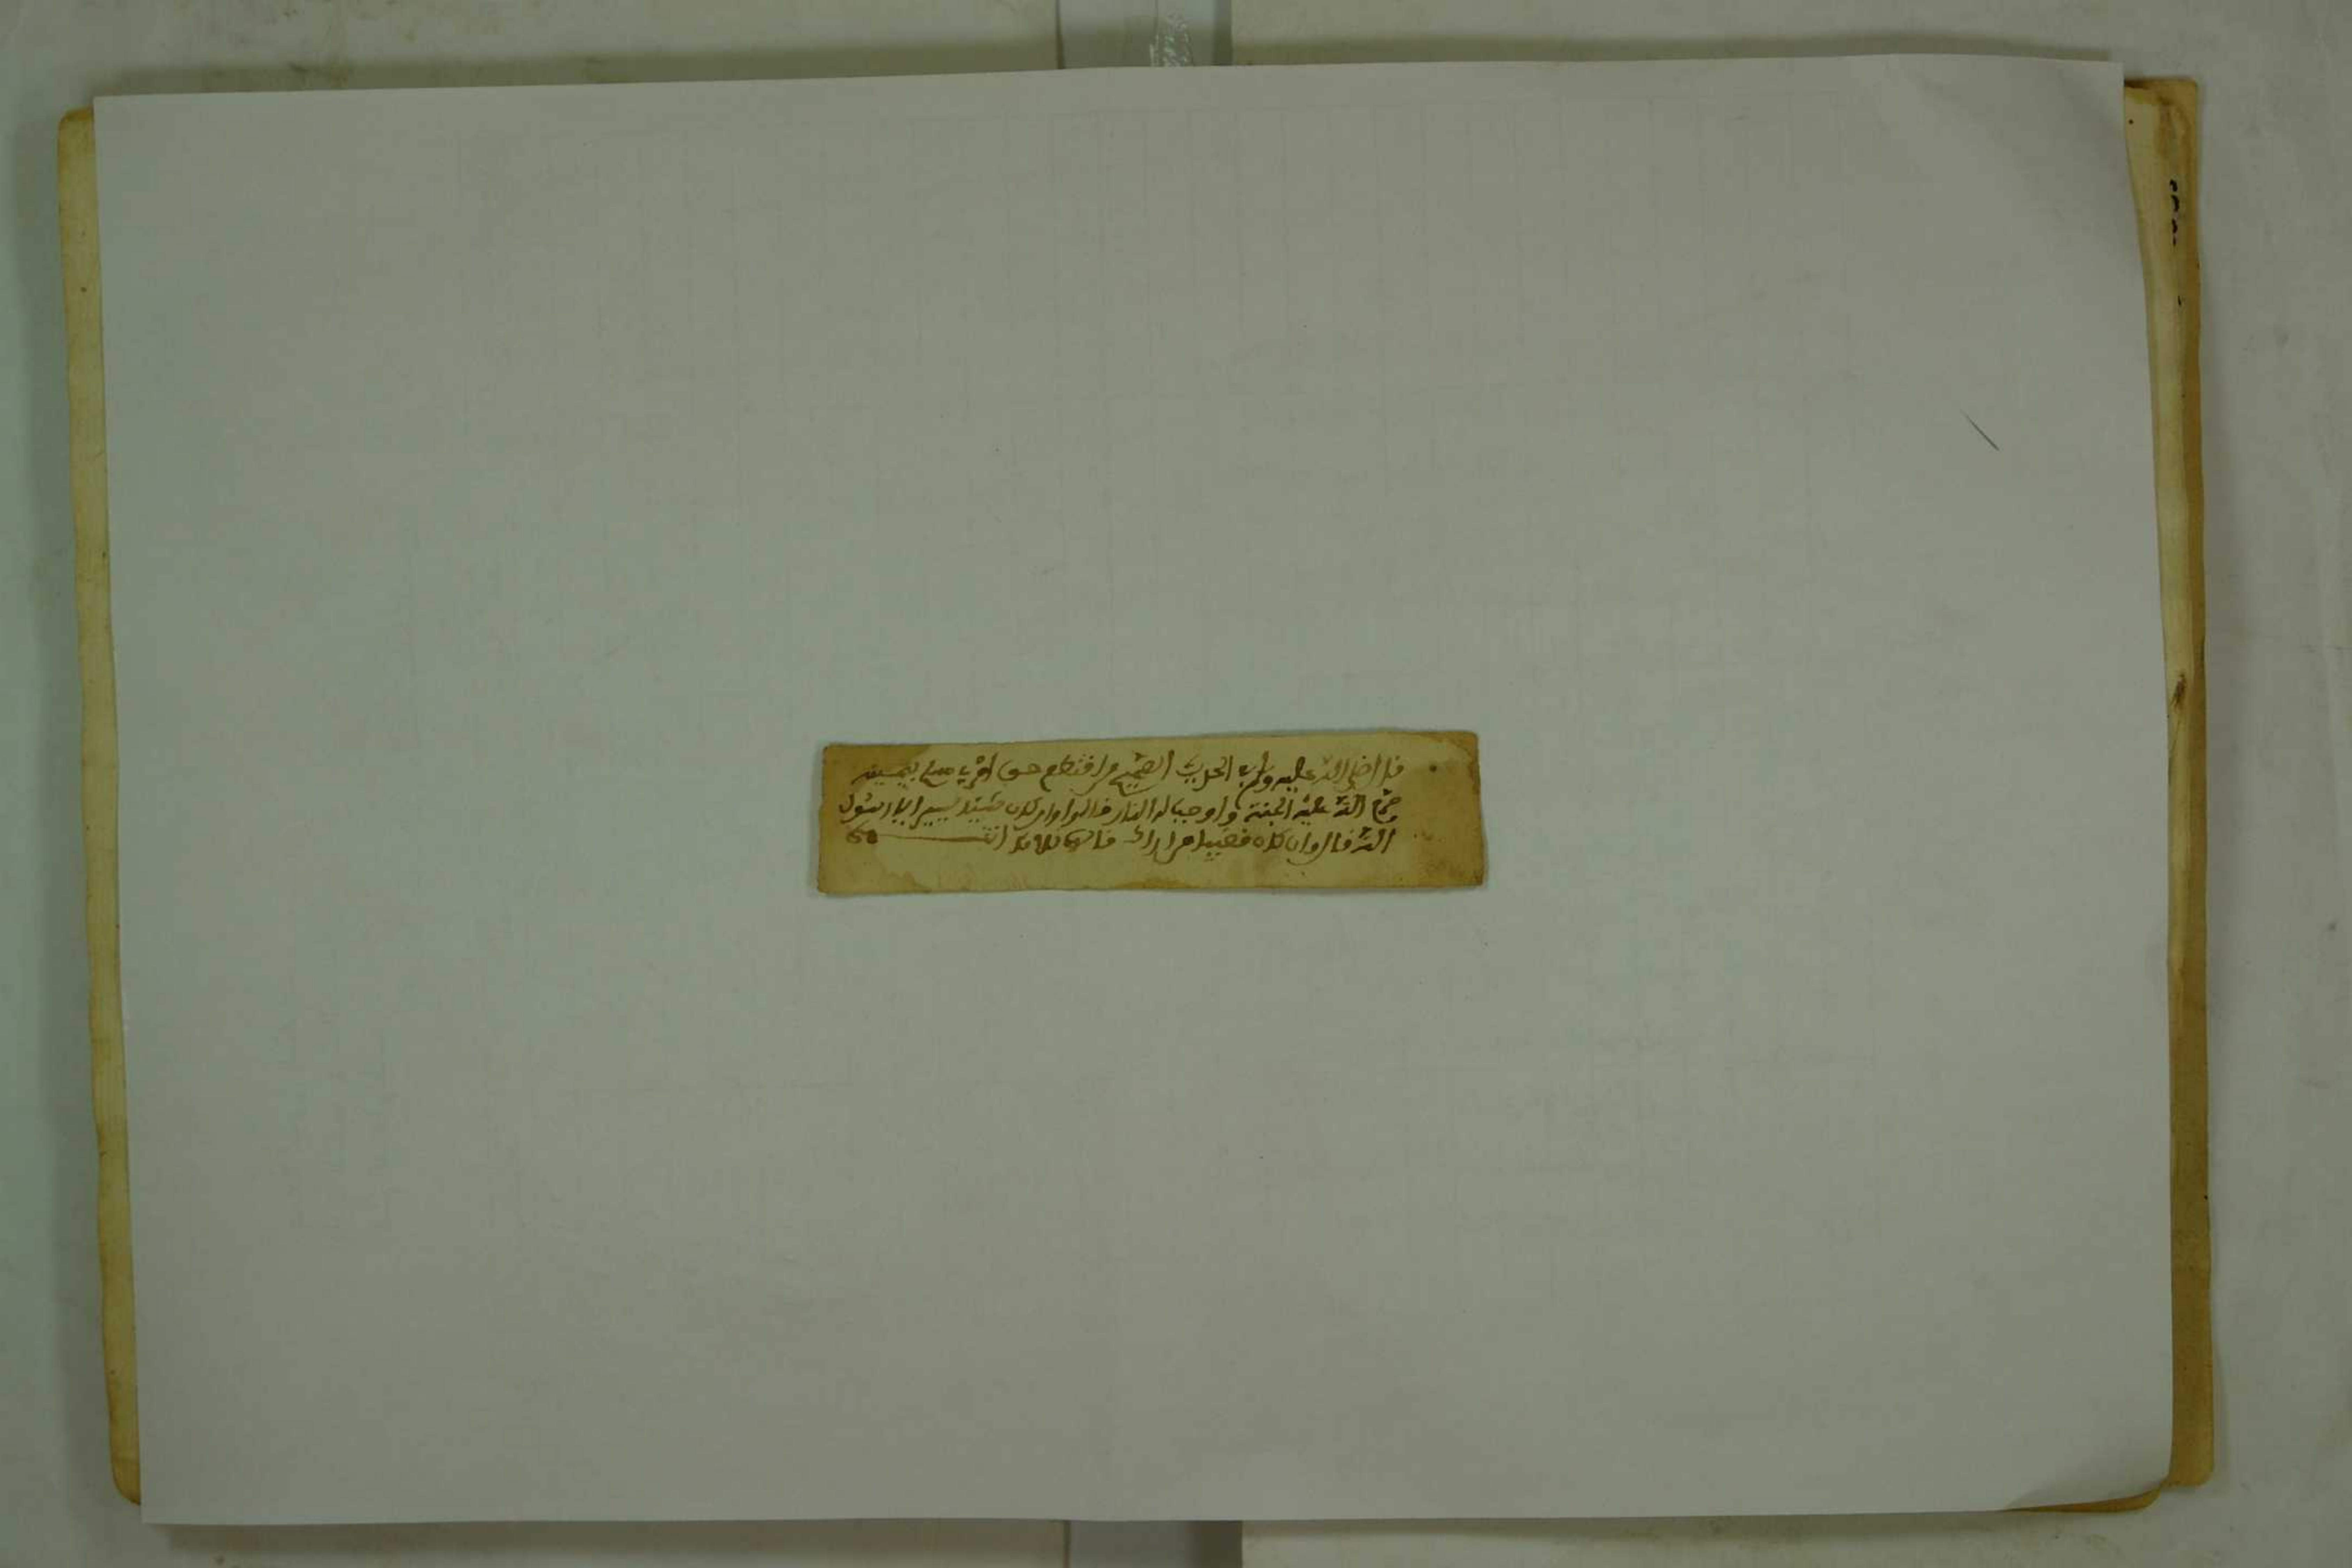 قال صلى الله عليه وسلم في الحديث الصحيح من اقتطع حق امرئ مسلم بيمينه
حرم الله عليه الجنة واوجب له النار قالوا وان كان شيئا يسيرا يا رسول
الله قال وان كان قضيبا من اراك قالها ثلاثا انتهى